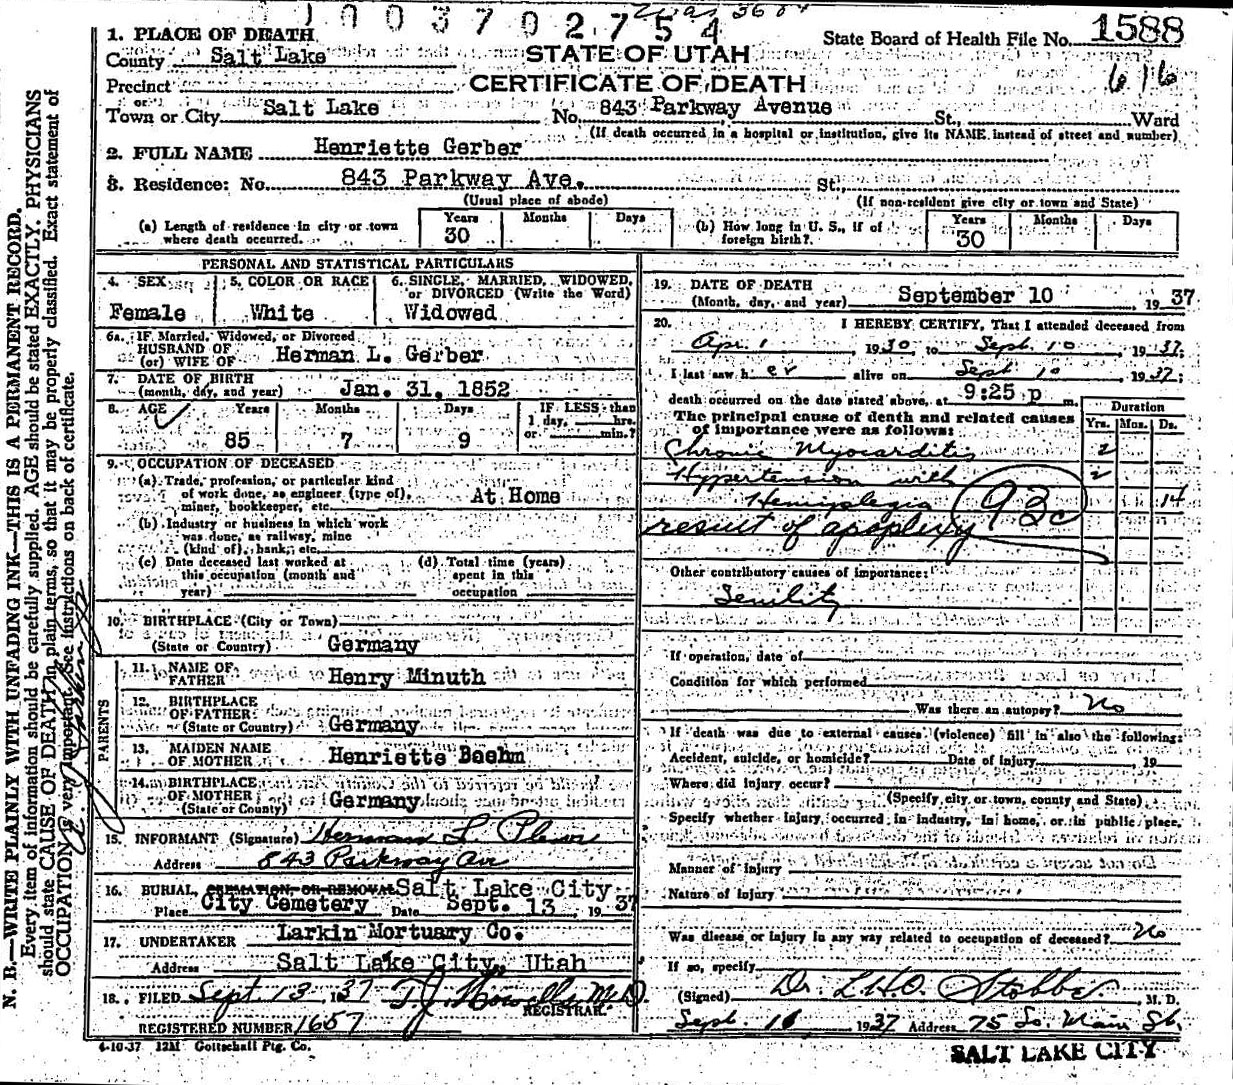 1003702754
1. PLACE OF DEATH
State Board of Health File No. 1588
County Salt Lake
STATE OF UTAH
616
Precinct
CERTIFICATE OF DEATH
or
Town or City Salt Lake No. 843 Parkway Avenue St., Ward
(If death occurred in a hospital or institution, give its NAME instead of street and number)
2. FULL NAME Henriette Gerber
3. Residence: No. 843 Parkway Ave. St.,
(Usual place of abode) (If non-resident give city or town and State)
(a) Length of residence in city or town where death occurred. Years 30 Months Days
(b) How long in U. S., if of foreign birth? Years 30 Months Days
PERSONAL AND STATISTICAL PARTICULARS
4. SEX Female
5. COLOR OR RACE White
6. SINGLE, MARRIED, WIDOWED,
or DIVORCED (Write the Word)
Widowed
6a. IF Married, Widowed, or Divorced
HUSBAND OF
(or) WIFE OF Herman L. Gerber
7. DATE OF BIRTH
(month, day, and year) Jan. 31, 1852
8. AGE Years Months Days IF LESS than
1 day, hrs.
85 7 9 or min.?
9. OCCUPATION OF DECEASED
(a) Trade, profession, or particular kind
of work done, as engineer (type of),
miner, bookkeeper, etc. At Home
(b) Industry or business in which work
was done, as railway, mine
(kind of), bank, etc.
(c) Date deceased last worked at
this occupation (month and
year)
(d) Total time (years)
spent in this
occupation
10. BIRTHPLACE (City or Town)
(State or Country) Germany
PARENTS
11. NAME OF
FATHER Henry Minuth
12. BIRTHPLACE
OF FATHER
(State or Country) Germany
13. MAIDEN NAME
OF MOTHER Henriette Boehm
14. BIRTHPLACE
OF MOTHER
(State or County) Germany
15. INFORMANT (Signature) Herman L
Address 843 Parkway Av
16. BURIAL, CREMATION, OR REMOVAL Salt Lake City
Place City Cemetery Date Sept. 13, 1937
17. UNDERTAKER Larkin Mortuary Co.
Address Salt Lake City, Utah
18. FILED Sept. 13 1937 T.J. Howells M.D.
REGISTRAR.
REGISTERED NUMBER 1657
4-10-37 12M Gottschall Ptg. Co.
19. DATE OF DEATH
(Month, day, and year) September 10, 1937
20. I HEREBY CERTIFY, That I attended deceased from
Apr. 1, 1930, to Sept. 10, 1937;
I last saw her alive on Sept 10 1937;
death occurred on the date stated above, at 9:25 p m.
The principal cause of death and related causes
of importance were as follows:
Duration
Yrs. Mos. Ds.
Chronic Myocarditis 2
Hypertension with 2
Hemiplegia 14
93c
result of apoplexy
Other contributory causes of importance:
Senility
If operation, date of
Condition for which performed
Was there an autopsy? No
If death was due to external causes (violence) fill in also the following:
Accident, suicide, or homicide? Date of injury 19
Where did injury occur?
(Specify city or town, county and State)
Specify whether injury occurred in industry, in home, or in public place.
Manner of injury
Nature of injury
Was disease or injury in any way related to occupation of deceased? No
If so, specify
(Signed) Dr. L.H.O. Stobbe, M. D.
Sept 1937 Address 75 So. Main St.
SALT LAKE CITY
N. B.—WRITE PLAINLY WITH UNFADING INK—THIS IS A PERMANENT RECORD.
Every item of information should be carefully supplied. AGE should be stated EXACTLY. PHYSICIANS
should state CAUSE OF DEATH in plain terms, so that it may be properly classified. Exact statement of
OCCUPATION is very important. See instructions on back of certificate.